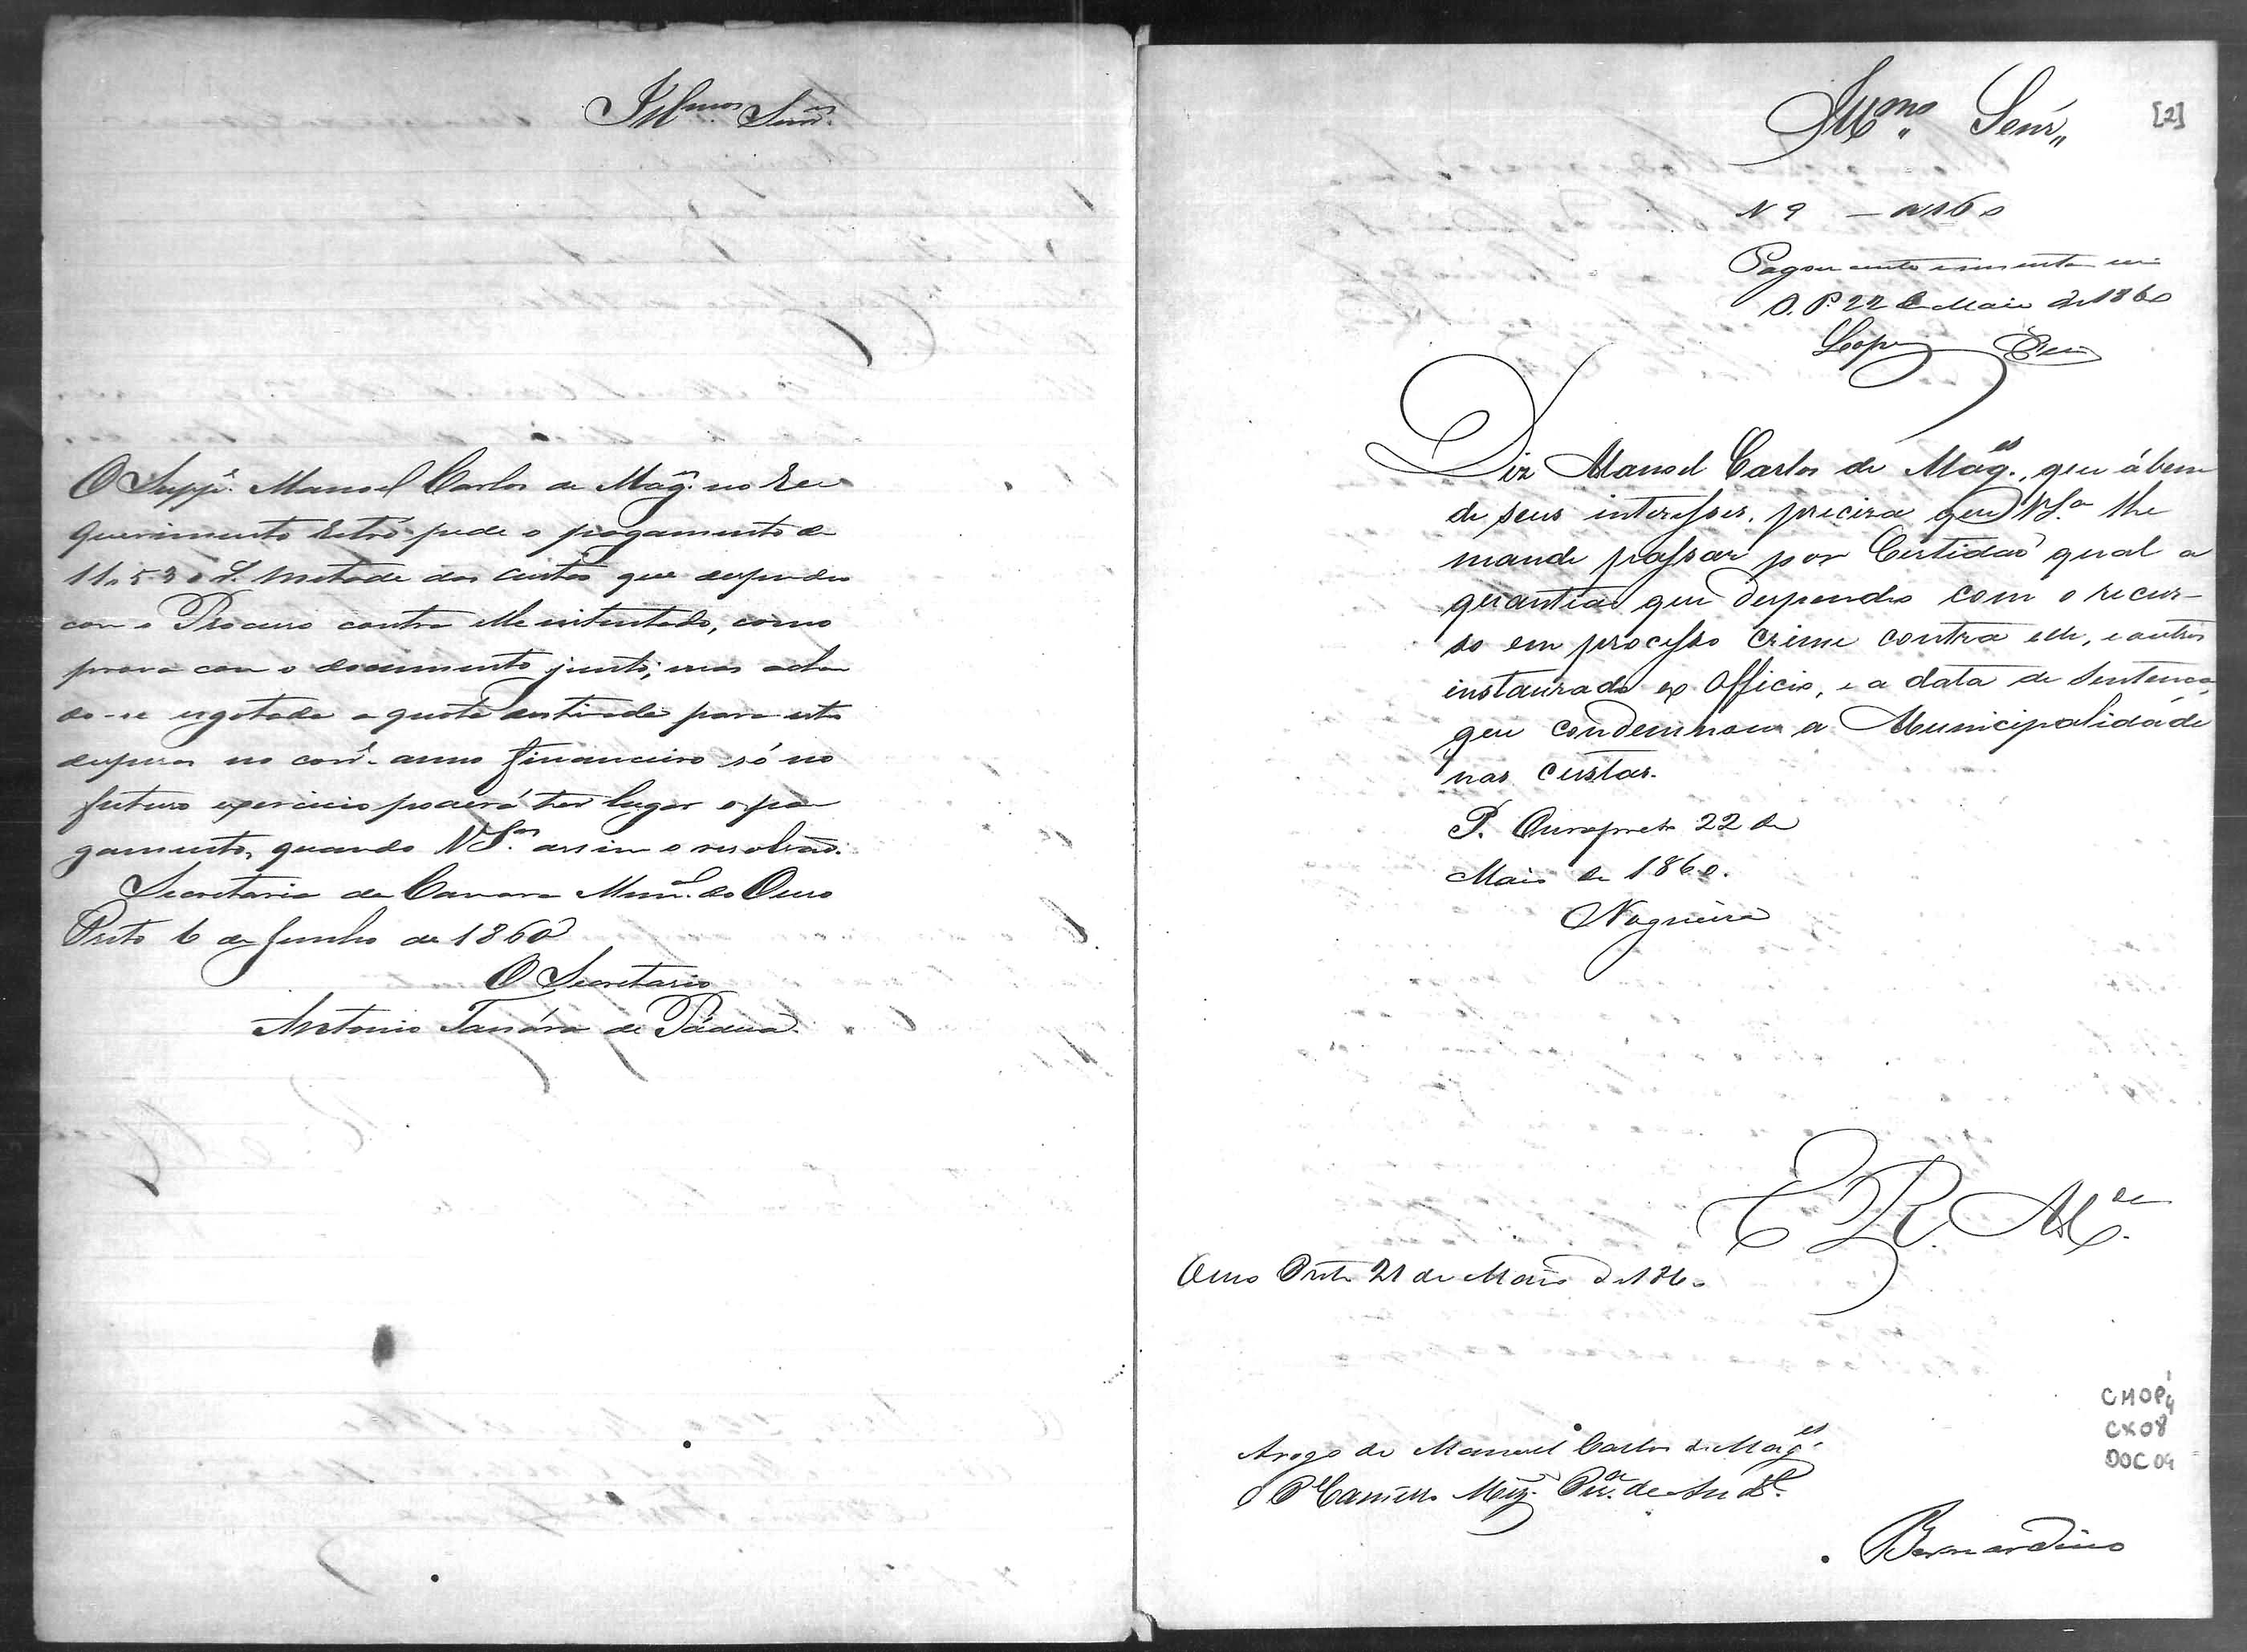 Illmos Snrs.
O Suppe. Manoel Carlos de Mages. no Re
querimento retro pede o pagamento de
11,530 rs. metade das custas que despendeo
com o Processo contra elle intentado, como
prova com o documento junto; mas achan
do-se esgotada a quota destinada para estas
despesas no corre. anno financeiro só no
futuro exercicio poderá ter lugar o pa
gamento, quando VSas. assim o resolvão.
Secretaria da Camara Munal. do Ouro
Preto 6 de Junho de 1860
O Secretario
Antonio de Pádua
Illmo. Senr.
[2]
N 9 — 160
Pagou cento e sessenta reis
O. P. 22 de Maio de 1860
Lopes
Diz Manoel Carlos de Mages., que á bem
de seus interesses, precisa que VSa. lhe
mande passar por Certidaõ qual a
quantia que despendeo com o recur-
so em processo crime contra elle, e outros
instaurado ex officio, e a data da Sentença
que condemnou a Municipalidade
nas custas.
P. Ouropreto 22 de
Maio de 1860.
Nogueira
E R. Mce.
Ouro Preto 21 de Maio de 1860
Arogo de Manoel Carlos de Mages.
O Pe. Camillo
Bernardino
CMOP
CX08
DOC04